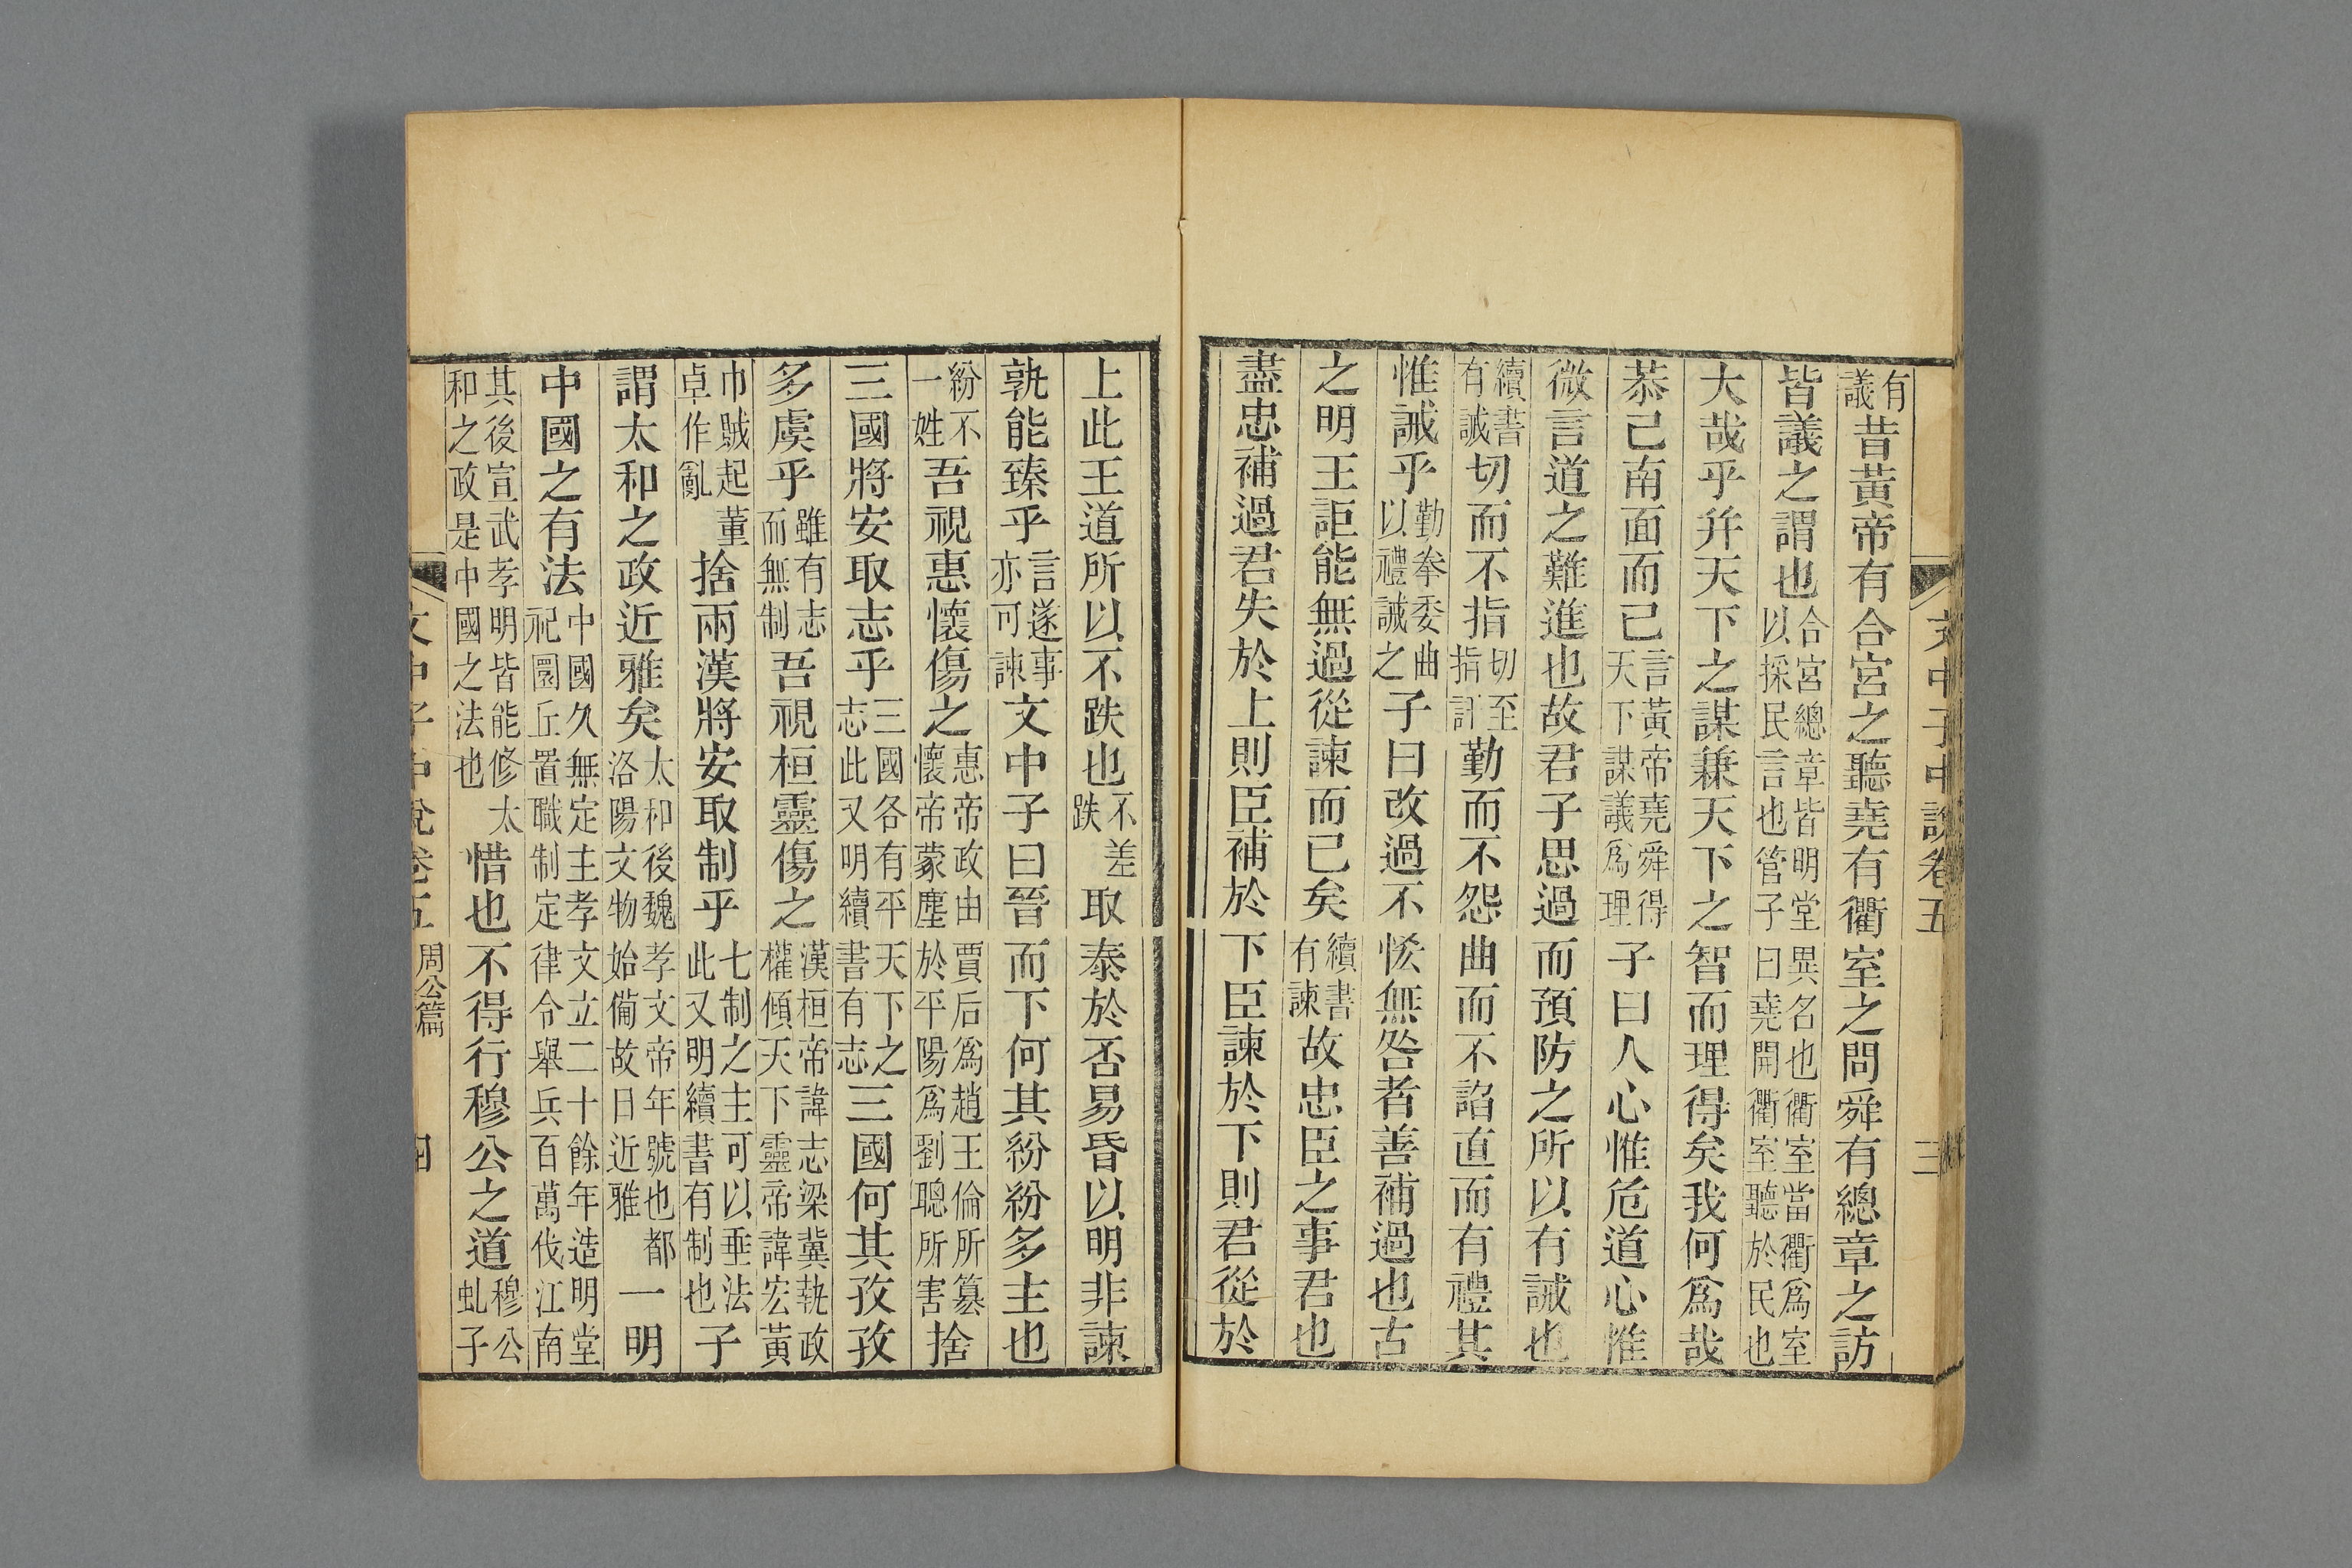 文中子中說卷五 三
有議昔黃帝有合宮之聽堯有衢室之問舜有總章之訪
皆議之謂也合宮總章皆明堂異名也衢室當衢爲室以採民言也管子曰堯開衢室聽於民也
大哉乎幷天下之謀兼天下之智而理得矣我何爲哉
恭己南面而已言黃帝堯舜得天下謀議爲理子曰人心惟危道心惟
微言道之難進也故君子思過而預防之所以有誡也
續書有誡切而不指切至指訐勤而不怨曲而不諂直而有禮其
惟誡乎勤拳委曲以禮誡之子曰改過不恡無咎者善補過也古
之明王詎能無過從諫而已矣續書有諫故忠臣之事君也
盡忠補過君失於上則臣補於下臣諫於下則君從於
上此王道所以不跌也不差跌取泰於否易昏以明非諫
孰能臻乎言遂事亦可諫文中子曰晉而下何其紛紛多主也
紛不一姓吾視惠懷傷之惠帝政由賈后爲趙王倫所篡懷帝蒙塵於平陽爲劉聰所害捨
三國將安取志乎三國各有平天下之志此又明續書有志三國何其孜孜
多虞乎雖有志而無制吾視桓靈傷之漢桓帝諱志梁冀執政權傾天下靈帝諱宏黃
巾賊起董卓作亂捨兩漢將安取制乎七制之主可以垂法此又明續書有制也子
謂太和之政近雅矣太和後魏孝文帝年號也都洛陽文物始備故曰近雅一明
中國之有法中國久無定主孝文立二十餘年造明堂祀圜丘置職制定律令舉兵百萬伐江南
其後宣武孝明皆能修太和之政是中國之法也惜也不得行穆公之道穆公虬子
文中子中說卷五 周公篇 四